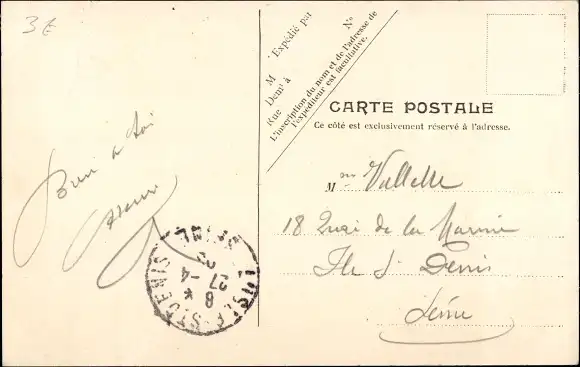 3€
Bien à toi
M
Demt à
Rue
Expédié par
No
L'inscription du nom et de l'adresse de
l'expéditeur est facultative.
CARTE POSTALE
Ce côté est exclusivement réservé à l'adresse.
Mon Vallette
18 Quai de la Marine
Ile St Denis
Seine
L'ILE-ST-DENIS
SEINE
8 *
27 -4